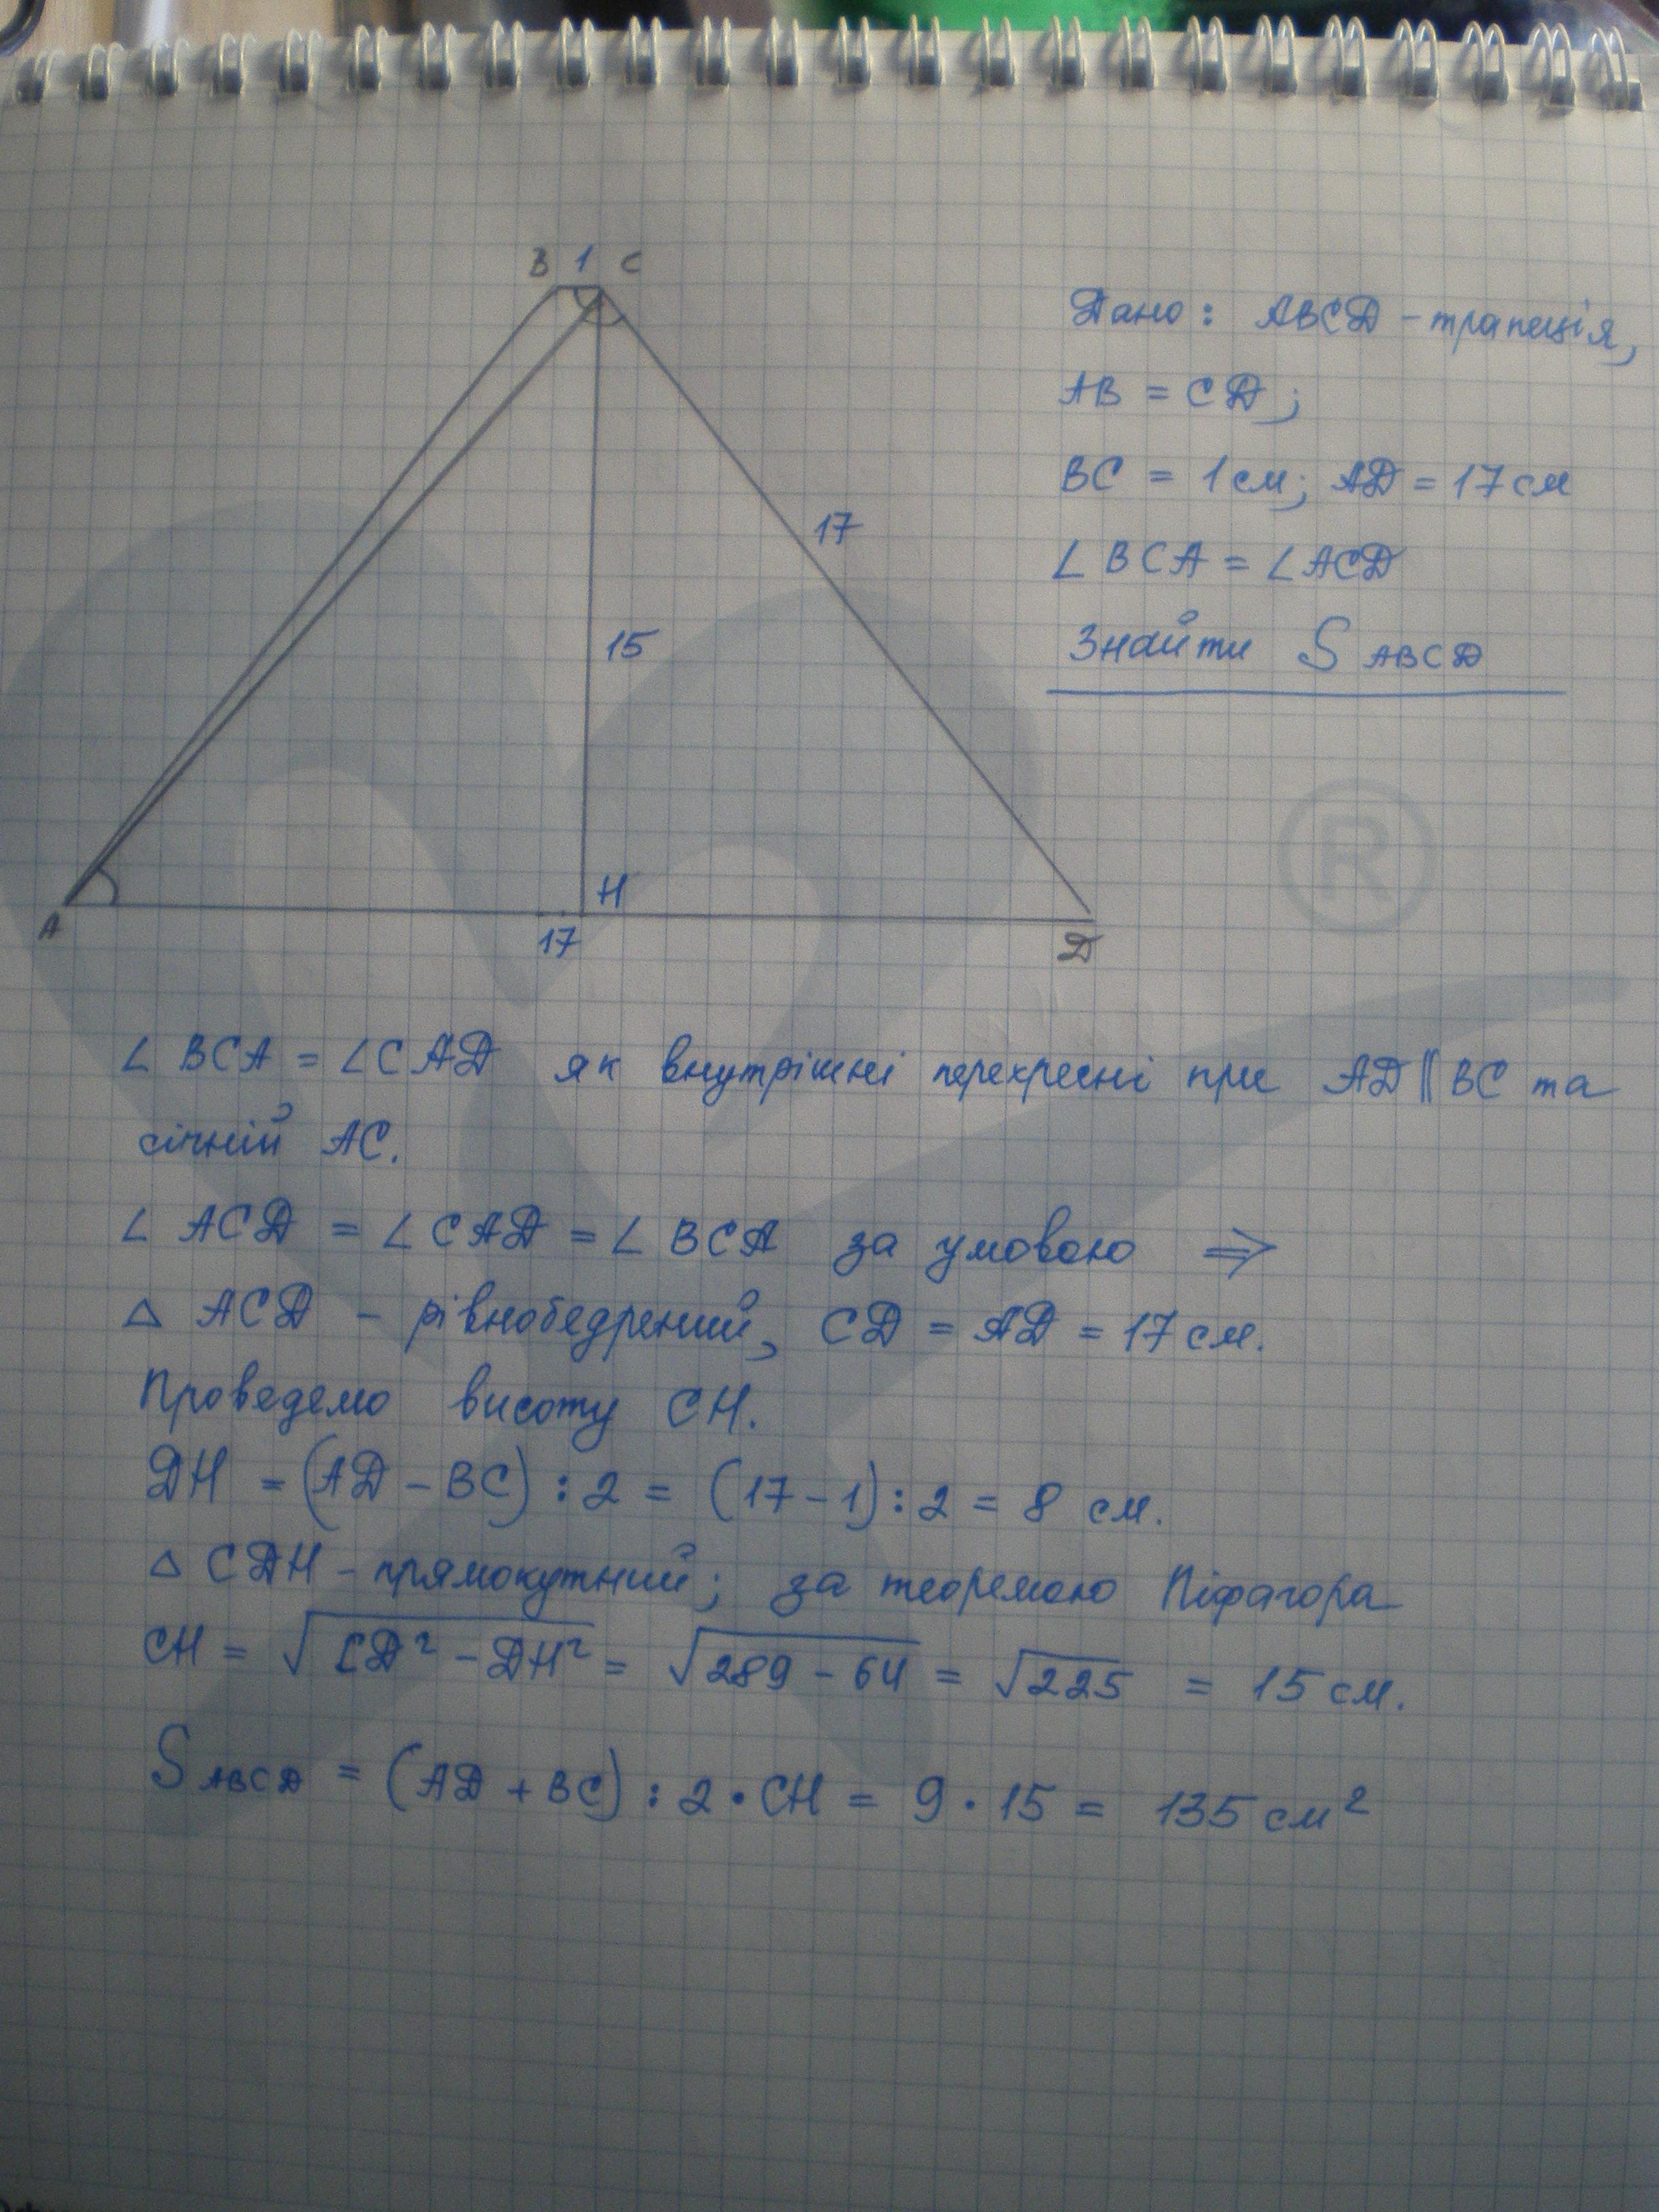 B 1 C
Дано: ABCD - трапеція,
AB = CD;
BC = 1 см; AD = 17 см
∠ BCA = ∠ACD
Знайти S ABCD
17
15
H
A
17
D
®
∠ BCA = ∠CAD як внутрішні перехресні при AD || BC та
січній AC.
∠ ACD = ∠CAD = ∠ BCA за умовою ⇒
△ ACD - рівнобедрений, CD = AD = 17 см.
Проведемо висоту CH.
DH = (AD - BC) : 2 = (17 - 1) : 2 = 8 см.
△ CDH - прямокутний; за теоремою Піфагора
CH = √CD² - DH² = √289 - 64 = √225 = 15 см.
S ABCD = (AD + BC) : 2 · CH = 9 · 15 = 135 см²